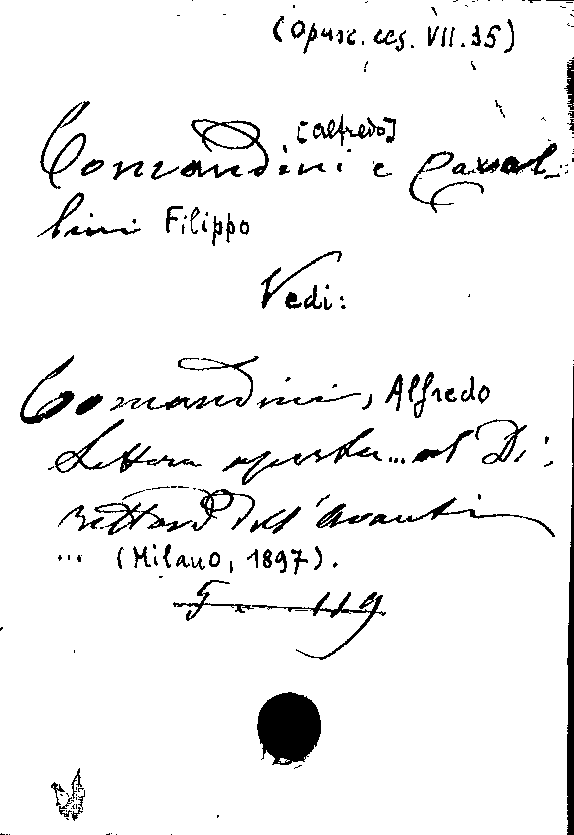 (Opusc. ces. VII. 35)
[Alfredo]
Comandini e Caval-
lini Filippo
Vedi:
Comandini, Alfredo
Lettera aperta... al Di-
rettore dell'Avanti
... (Milano, 1897).
119